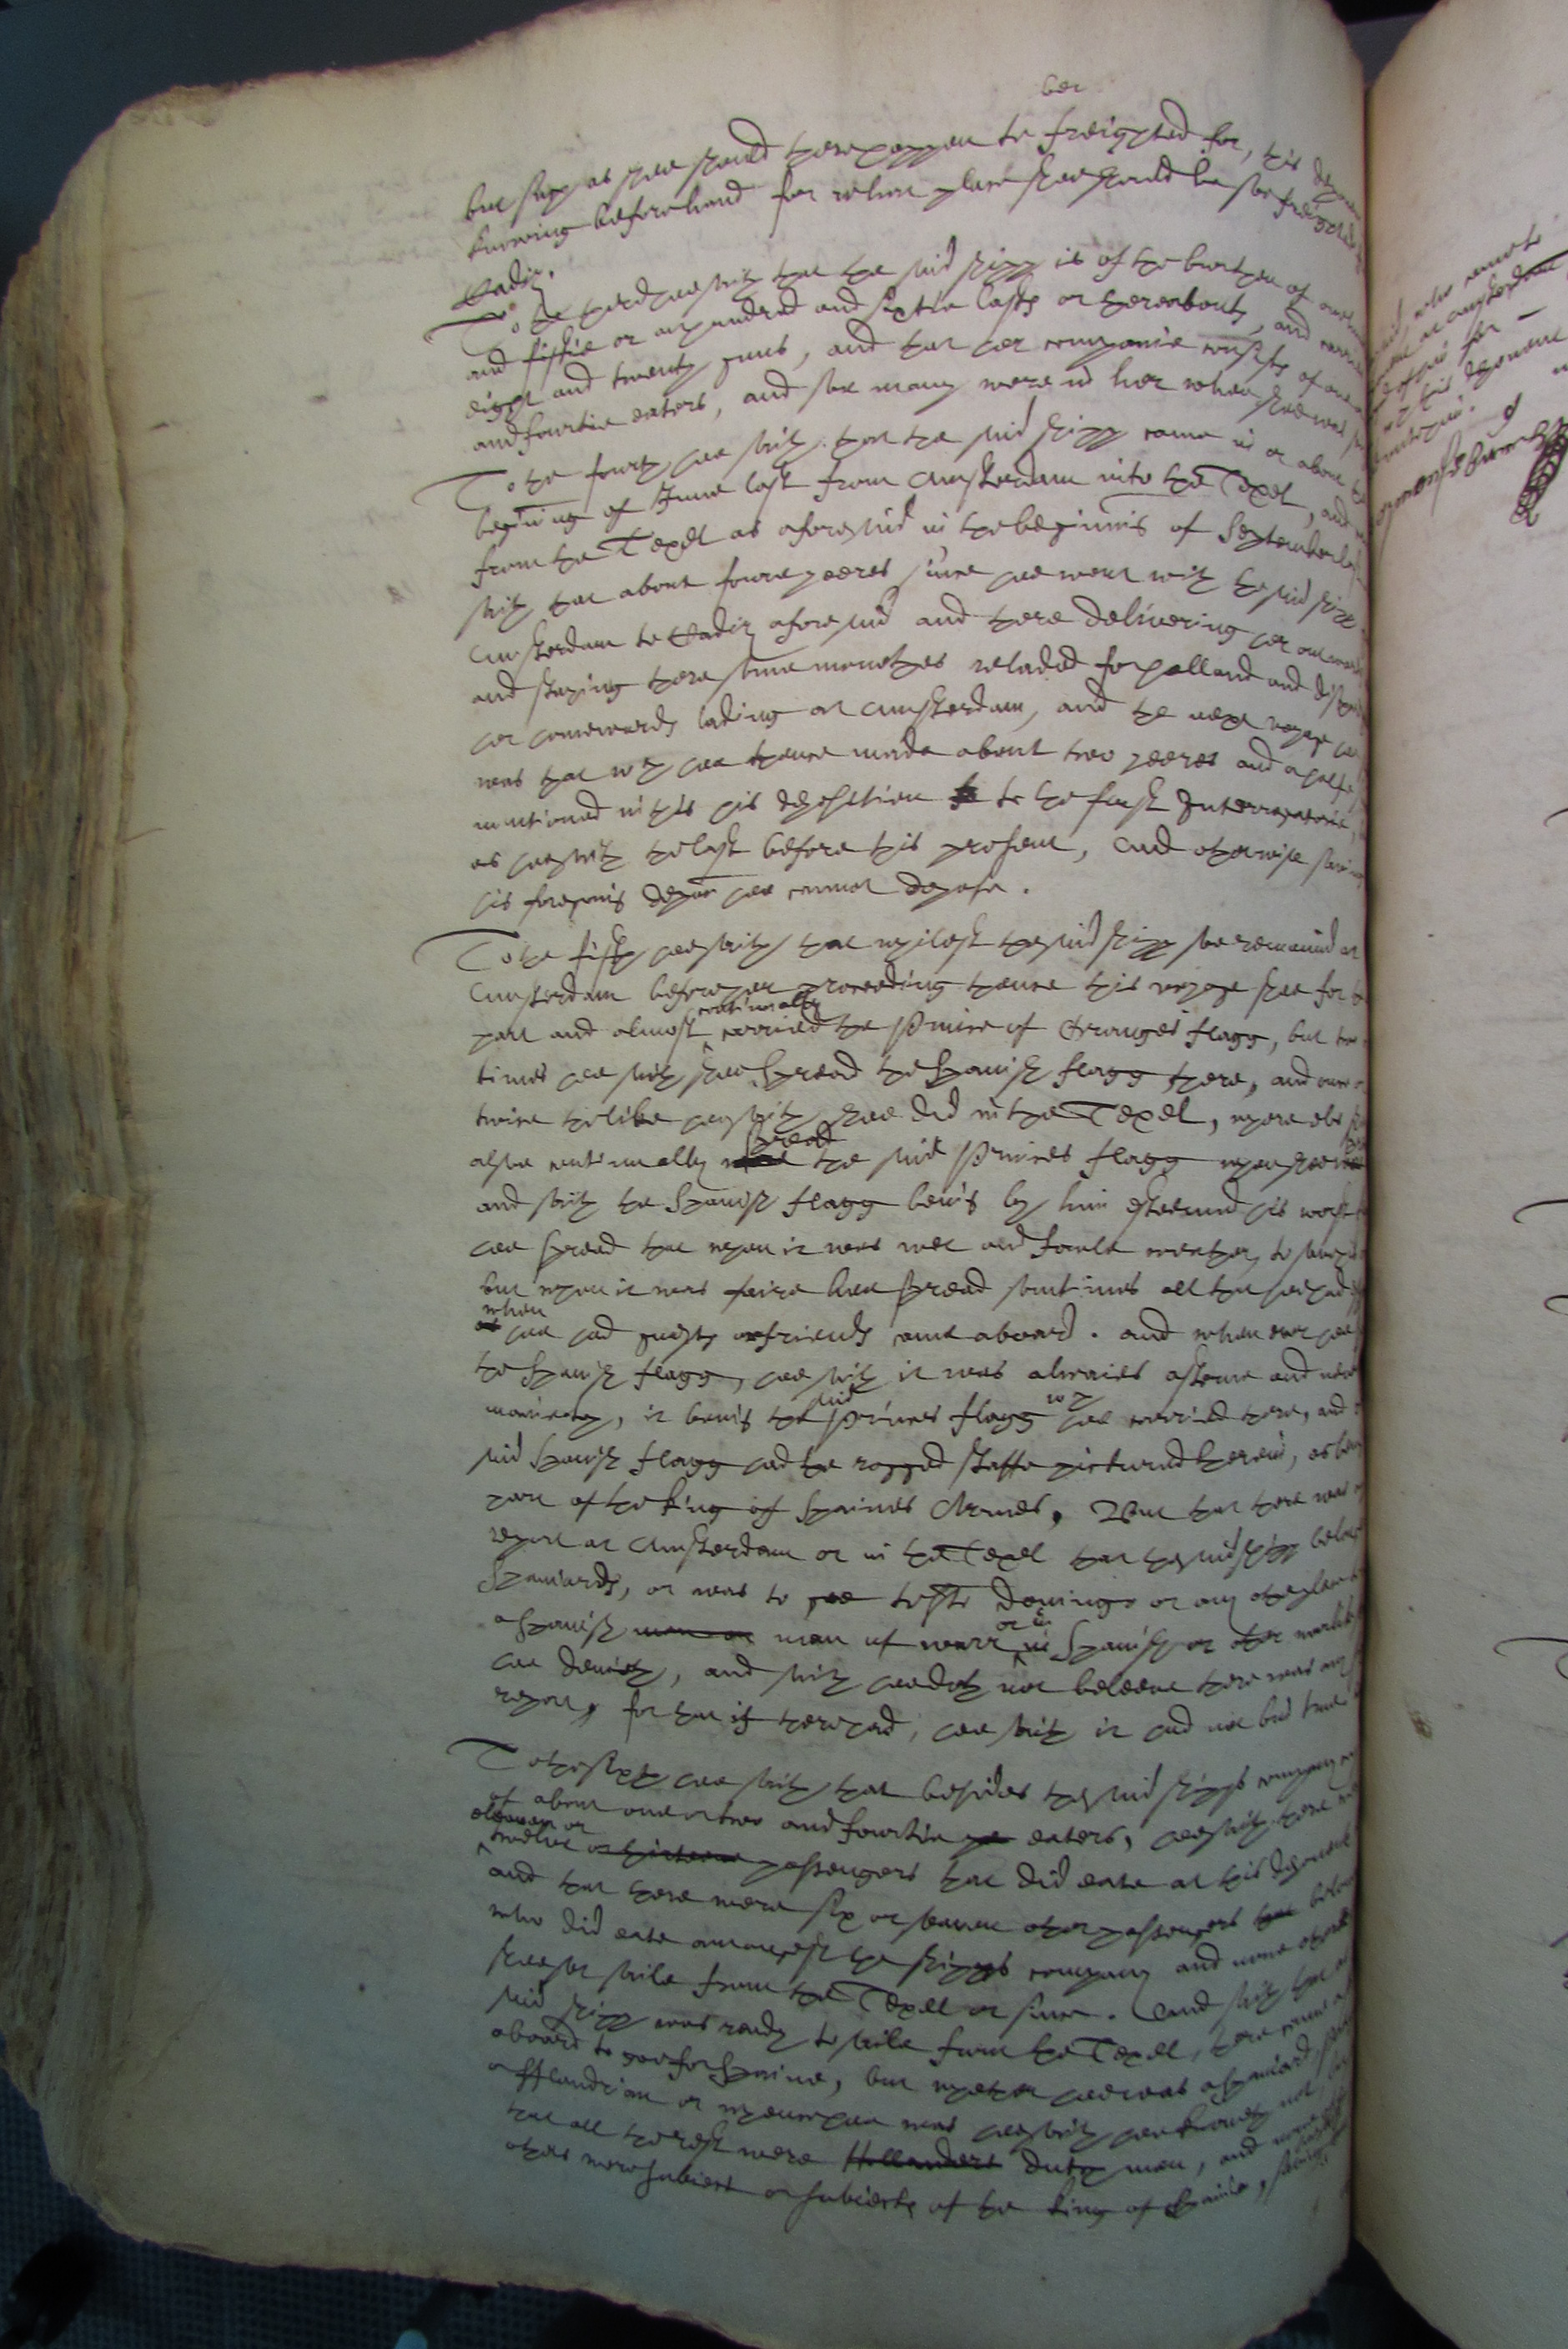 ber
but such as shee should there happen to freighted for, this depon
knowing beforehand for what place shee should be soe freighted
Cadiz.
To the third hee saith that the said shipp is of the burthen of one hund
and fiftie or a hundred and sixtie lasts or thereabouts, and carrie
eight and twenty gunns, and that her companie consists of one
and fourtie eaters, and soe many were in her when shee was
To the fourth hee saith that the said shipp came in or about the
begining of June last from Amsterdam into the Texel, and
from the Texel as aforesaid in the begining of September last
saith that about foure yeeres since hee went with the said shipp
Amsterdam to Cadiz aforesaid and there delivering her outward
and staying there some monethes reladed for holland and disch
her homewards lading at Amsterdam, and the next voyage
was that which hee thence made about two yeeres and a halfe
mentioned in this his deposition to the first Interrogatorie,
as hee saith the last before this present, And otherwise saving
his foregoing deposition hee cannot depose.
To the fifth hee saith that whilest the said shipp soe remained at
Amsterdam before her proceeding thence this voyage shee for the
part and almost continually carried the Prince of Orange's flagg, but two
times hee saith shee spread the Spanish flagg there, and once or
twice the like hee saith shee did in the Texel, where els
alsoe continually spread the said Princes flagg when shee
and saith the Spanish flagg being by him esteemed his worst
hee spread that when it was wet and foule weather, to save
but when it was faire hee spread somtimes all that hee had
when hee had guests or friends came aboard. and when ever hee
the Spanish flagg, hee saith it was alwaies asterne and never
mainetop, it being the said Princes flagg which hee carried there, and
said Spanish flagg had the ragged staffe pictured therein, as being
part of the king of Spaines Armes, But that there was
report at Amsterdam or in the Texel that the said shipp belong
Spaniards, or was to goe to Sto Domingo or any other place
a Spanish man of warr or in Spanish or other warlike
hee denieth, and saith hee doth not beleeve there was any
report, for that if there had, hee saith it had not bin true
To the sixth hee saith that besides the said shipps company
of about one or two and fourtie eaters, hee saith there
eleaven or
twelve or thirteene passengers that did eate at this deponents
and that there were six or seaven other passengers
who did eate amongest the shipps company and none other
shee set saile from the Texel or since. And saith that
said shipp was ready to saile from the Texel, there came
aboard to goe for Spaine, but whether hee was a Spaniard
or fflandrian or whence hee was hee saith hee knoweth not,
that all the rest were Hollanders dutch men, and none
other were subiect or subiects of the king of Spaine,